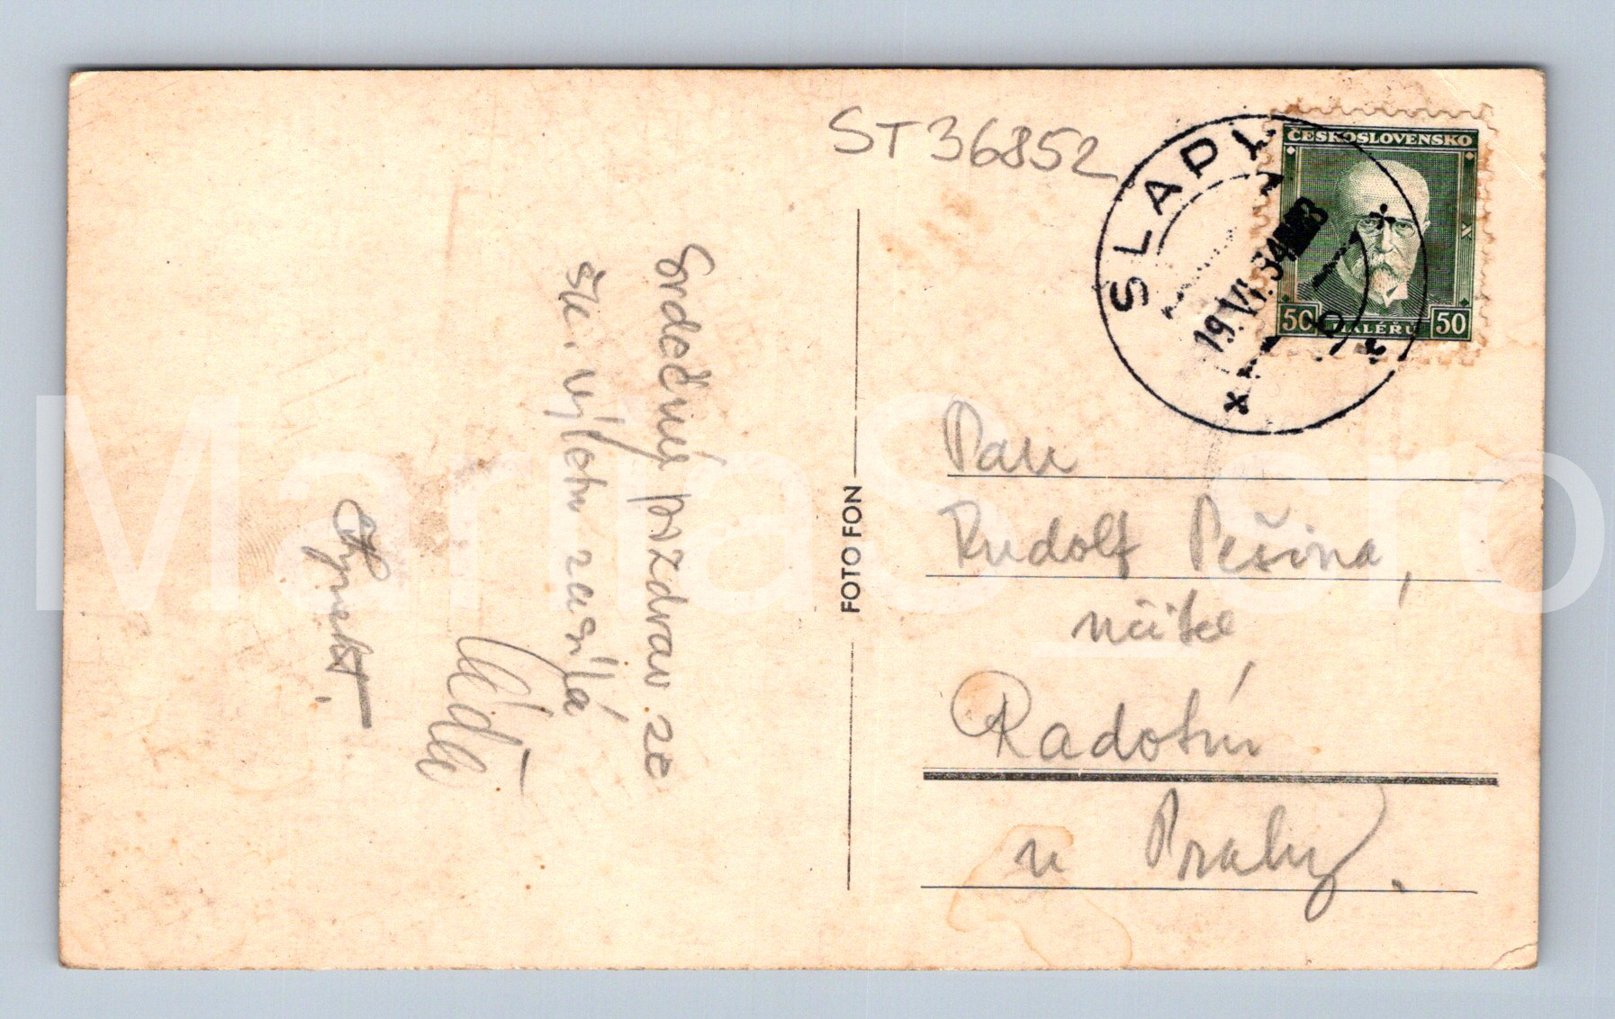 ST 36852
SLAPY
19.VI.34
ČESKOSLOVENSKO
50 HALÉŘŮ 50
Srdečný pozdrav ze
šk. výletu zasílá
FOTO FON
Pan
Rudolf Pešina,
učitel
Radotín
u Prahy.
MartaS_sro